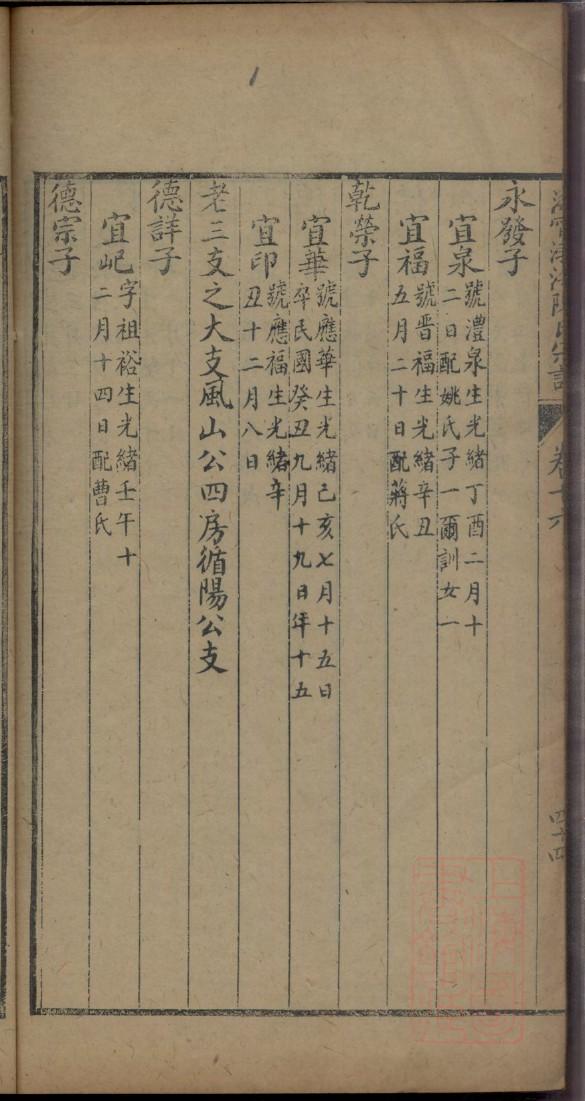 陳氏宗譜 卷十六 四十四
永發子
宜泉 號澧泉生光緒丁酉二月十
二日配姚氏子一爾訓女一
宜福 號晋福生光緒辛丑
五月二十日配蔣氏
乾榮子
宜華 號應華生光緒己亥七月十五日
卒民國癸丑九月十九日年十五
宜印 號應福生光緒辛
丑十二月八日
老三支之大支風山公四房循陽公支
德詳子
宜屺 字祖裕生光緒壬午十
二月十四日配曹氏
德宗子